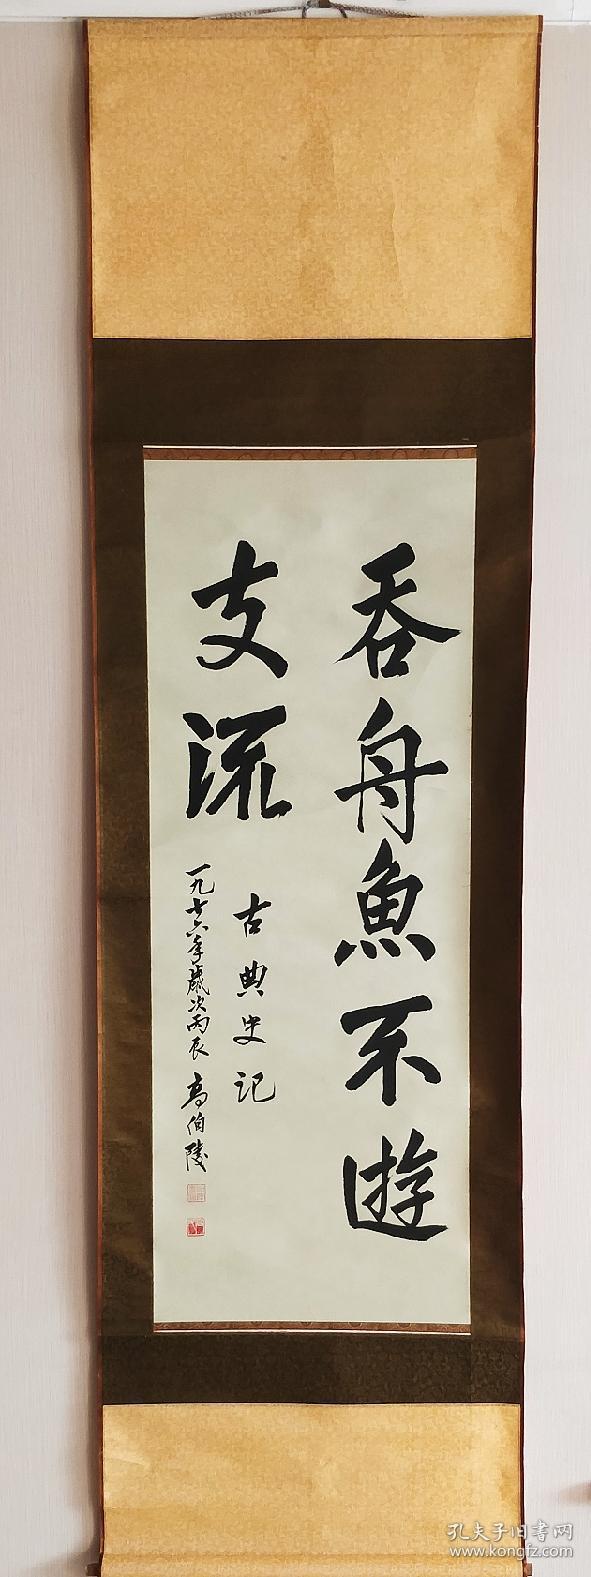 吞舟魚不遊
支流
古典史记
一九七六年歲次丙辰 高伯陵
孔夫子旧书网
www.kongfz.com